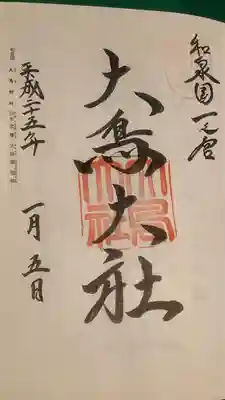 和泉国一之宮
大鳥大社
平成二十五年
一月五日